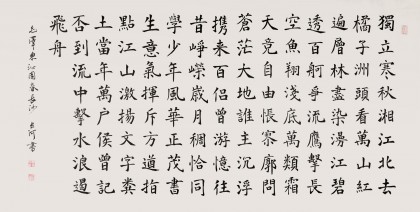 獨立寒秋湘江北去
橘子洲頭看萬山紅
遍層林盡染漫江碧
透百舸爭流鷹擊長
空魚翔淺底萬類霜
天競自由悵寥廓問
蒼茫大地誰主沉浮
携來百侶曾游憶往
昔崢嶸歲月稠恰同
學少年風華正茂書
生意氣揮斥方遒指
點江山激揚文字糞
土當年萬戶侯曾記
否到流中擊水浪遏
飛舟
毛澤東沁園春長沙 書